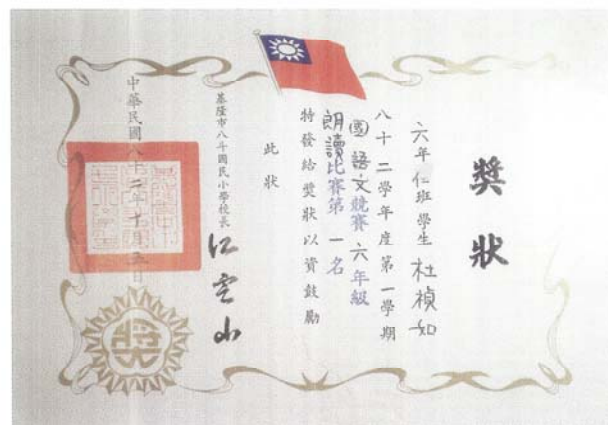 獎狀
六年仁班學生 杜禎如
八十二學年度第一學期
國語文競賽六年級
朗讀比賽第一名
特發給獎狀以資鼓勵
此狀
基隆市八斗國民小學校長 江雲山
中華民國八十二年十月五日
獎